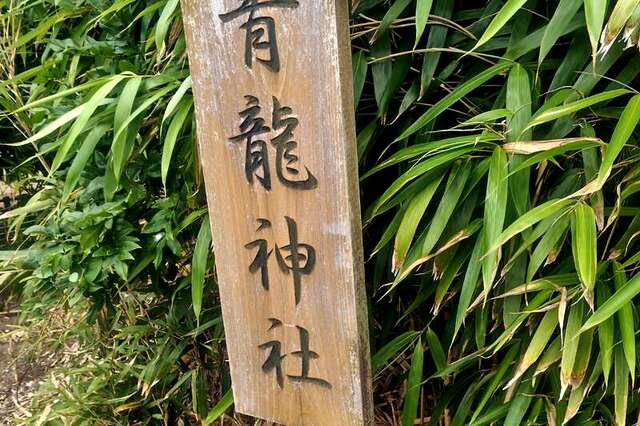 青龍神社